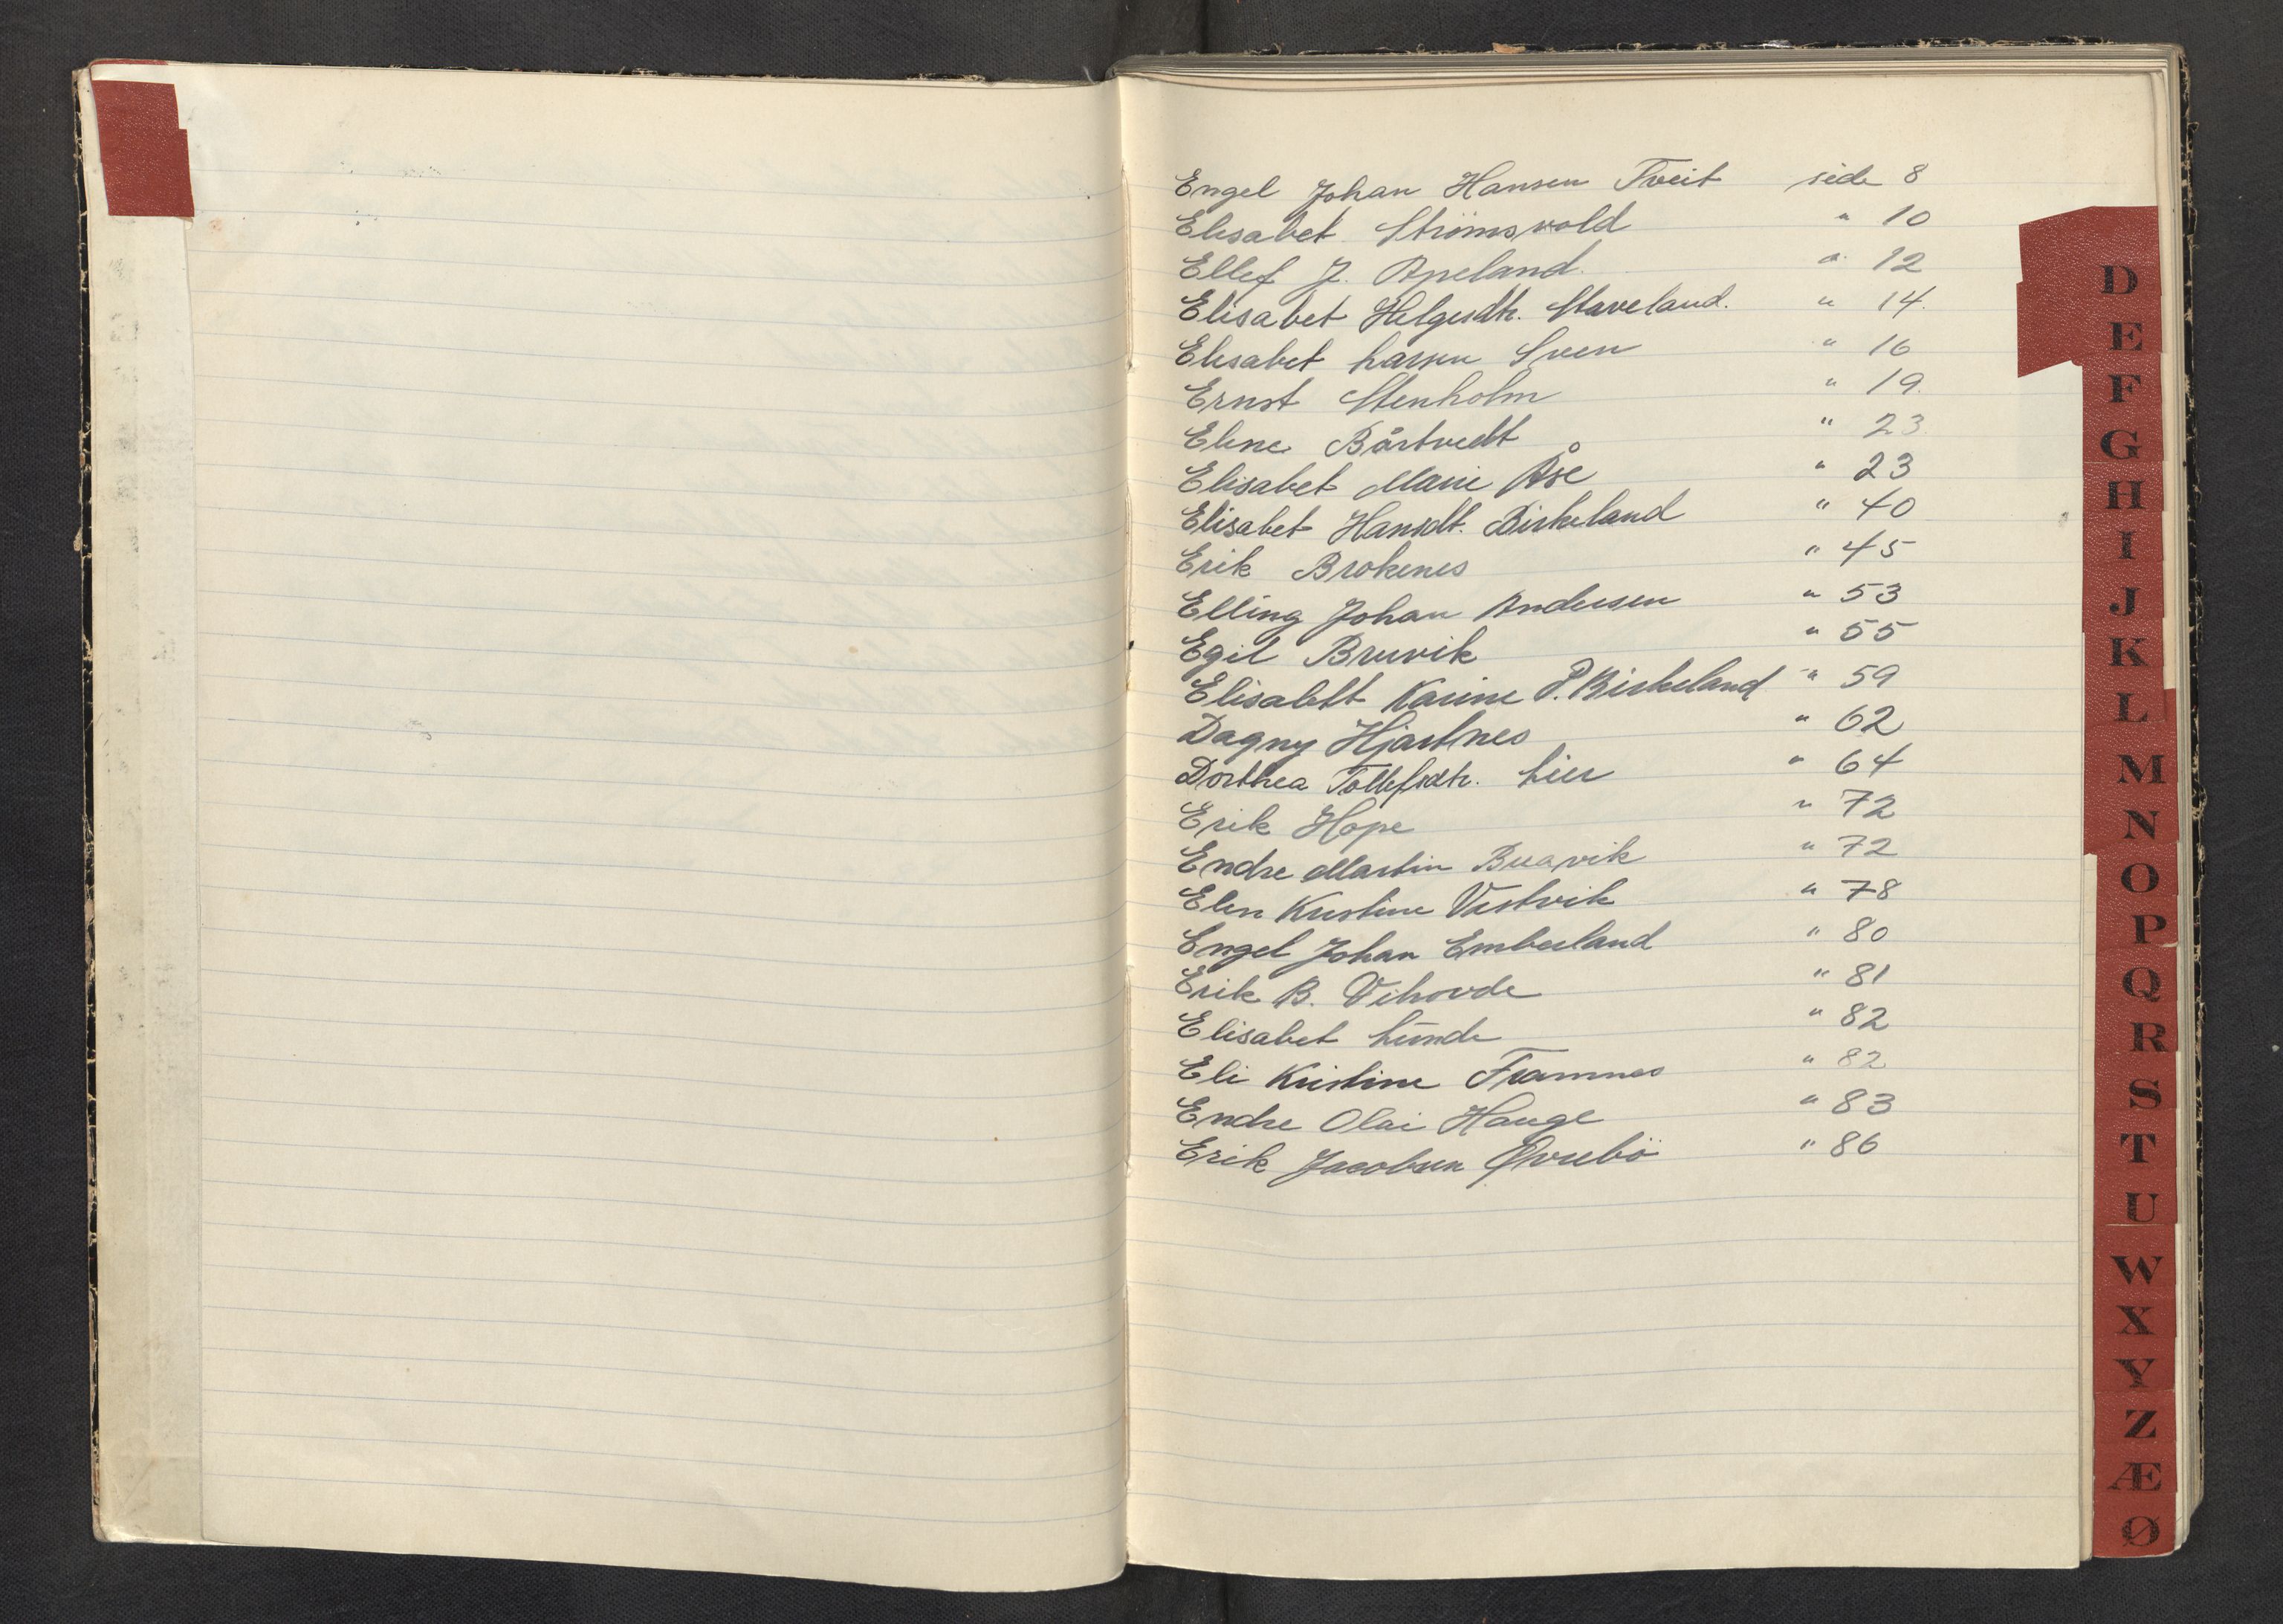 Engel Johan Hansen Tveit side 8
Elisabet Strömsvold " 10
Ellef J. Apeland. " 12
Elisabet Helgesdtr. Staveland. " 14.
Elisabet Larsen Sven " 16
Ernst Stenholm " 19.
Elene Bårtvedt " 23.
Elisabet Marie Åse " 23
Elisabet Hansdt. Birkeland " 40
Erik Brokenes " 45
Elling Johan Andersen " 53
Egil Bruvik " 55
Elisabett Karine P. Birkeland " 59
Dagny Hjartnes " 62
Dorthea Tollefsdtr. Lier " 64
Erik Hope " 72
Endre Martin Buavik " 72
Elen Kristine Vestvik " 78
Engel Johan Emberland " 80
Erik B. Vihovde " 81
Elisabet Lunde " 82
Eli Kristine Framnes " 82
Endre Olai Hauge " 83
Erik Jacobsen Øvrebö " 86
D
E
F
G
H
I
J
K
L
M
N
O
P
Q
R
S
T
U
W
X
Y
Z
Æ
Ø